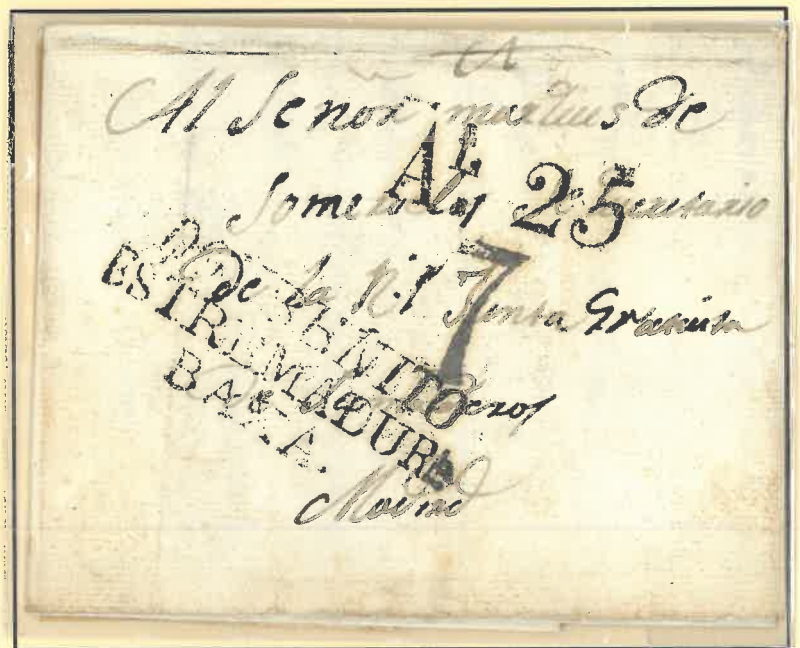 Al Señor marques de
Someruelos Secretario
de la Rl Junta Gratuita
de
Madrid
AL 25
7
Dn BENITO
ESTREMADURA
BAXA.